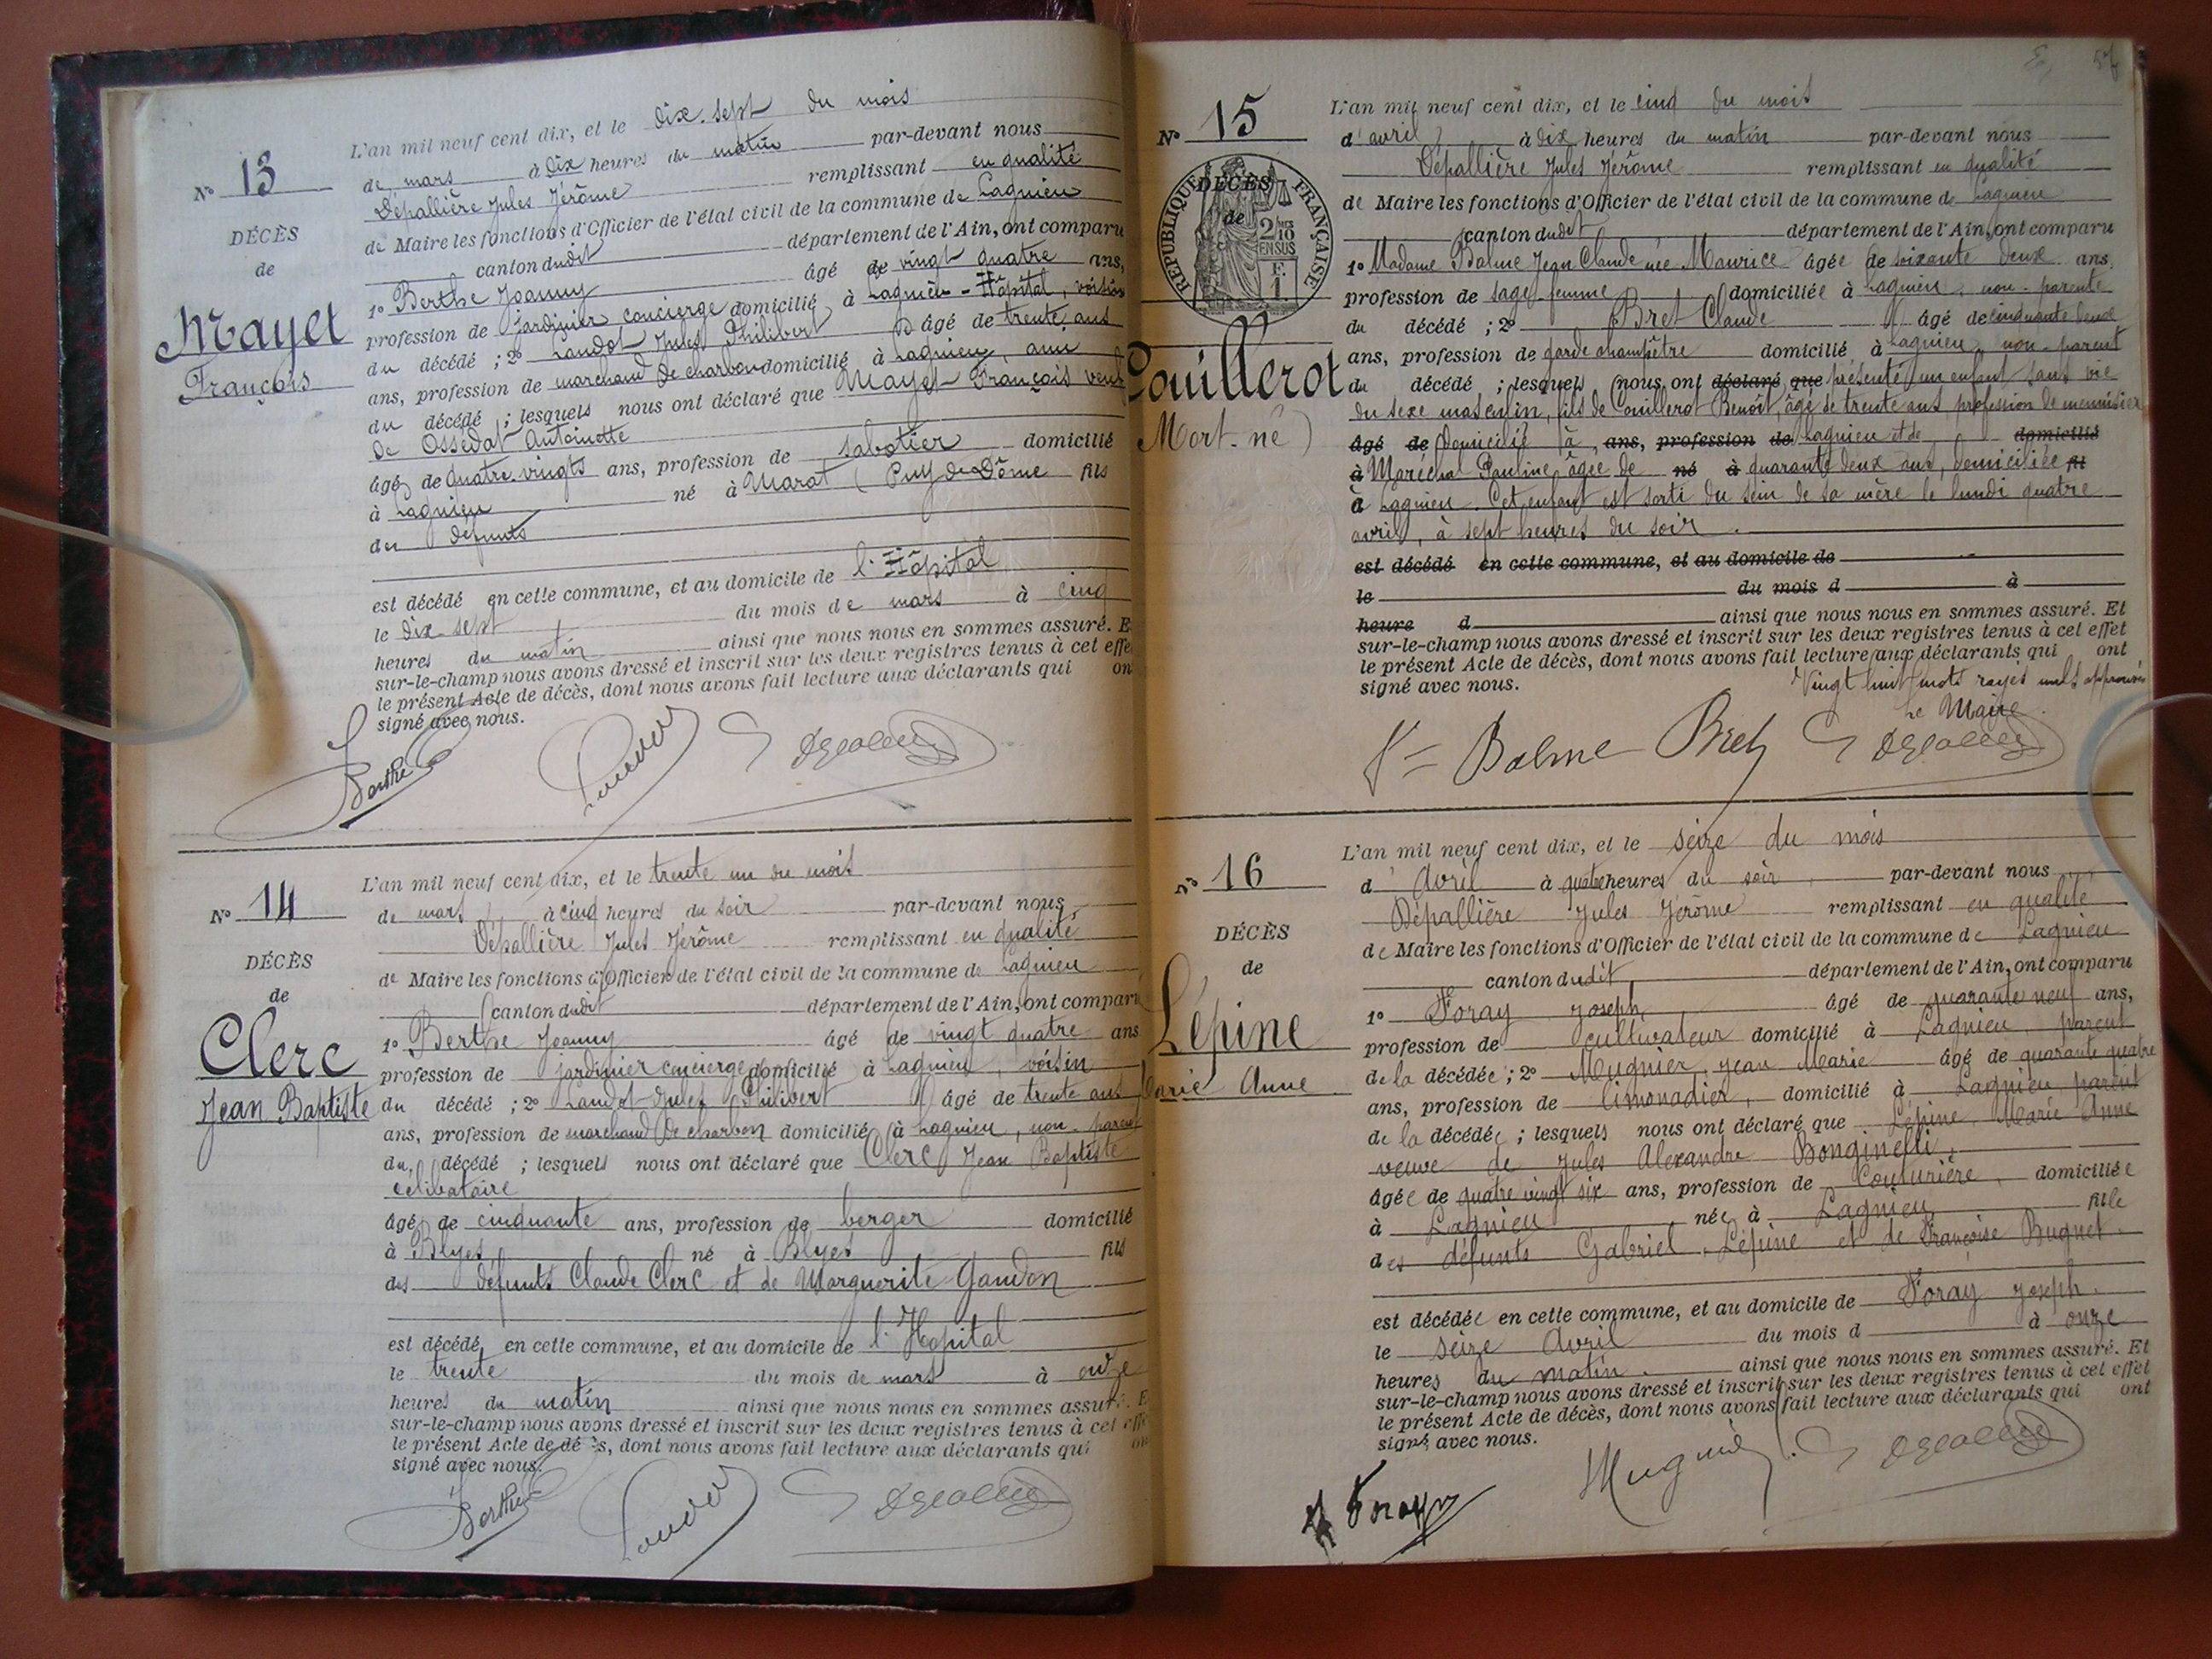 L'an mil neuf cent dix, et le dix-sept du mois
N° 13
de mars à dix heures du matin par-devant nous
Dépallière Jules Jérôme remplissant en qualité
de Maire les fonctions d'Officier de l'état civil de la commune de Lagnieu
DÉCÈS
de
Mayet
François
canton dudit département de l'Ain, ont comparu
1° Berthe Joanny âgé de vingt quatre ans,
profession de jardinier concierge domicilié à Lagnieu - Hôpital, voisin
du décédé ; 2° Landot Jules Philibert âgé de trente ans
ans, profession de marchand de charbon domicilié à Lagnieu, ami
du décédé ; lesquels nous ont déclaré que Mayet François veuf
de Ossedat Antoinette
âgé de quatre-vingts ans, profession de sabotier domicilié
à Lagnieu né à Marat (Puy de Dôme fils
des défunts
est décédé en cette commune, et au domicile de l'Hôpital
le dix-sept du mois de mars à cinq
heures du matin ainsi que nous nous en sommes assuré. E
sur-le-champ nous avons dressé et inscrit sur les deux registres tenus à cet effe
le présent Acte de décès, dont nous avons fait lecture aux déclarants qui on
signé avec nous.
Berthe
L'an mil neuf cent dix, et le trente un du mois
N° 14
de mars à cinq heures du soir par-devant nous
Dépallière Jules Jérôme remplissant en qualité
de Maire les fonctions d'Officier de l'état civil de la commune de Lagnieu
DÉCÈS
de
Clerc
Jean Baptiste
canton dudit département de l'Ain, ont comparu
1° Berthe Joanny âgé de vingt quatre ans
profession de jardinier concierge domicilié à Lagnieu, voisin
du décédé ; 2° Landot Jules Philibert âgé de trente ans
ans, profession de marchand de charbon domicilié à Lagnieu, non-parent
du décédé ; lesquels nous ont déclaré que Clerc Jean Baptiste
célibataire
âgé de cinquante ans, profession de berger domicilié
à Blyes né à Blyes fils
des défunts Claude Clerc et de Marguerite Gandon
est décédé en cette commune, et au domicile de l'Hopital
le trente du mois de mars à onze
heures du matin ainsi que nous nous en sommes assuré. E
sur-le-champ nous avons dressé et inscrit sur les deux registres tenus à cet effe
le présent Acte de décès, dont nous avons fait lecture aux déclarants qui on
signé avec nous.
Berthe
L'an mil neuf cent dix, et le cinq du mois
N° 15
d'avril à dix heures du matin par-devant nous
Dépallière Jules Jérôme remplissant en qualité
de Maire les fonctions d'Officier de l'état civil de la commune de Lagnieu
RÉPUBLIQUE FRANÇAISE
DÉCÈS
de
2/10 EN SUS
F. 1.
Couillerot
Mort-né
canton dudit département de l'Ain, ont comparu
1° Madame Balme Jean Claude née Maurice âgée de soixante deux ans,
profession de sage-femme domiciliée à Lagnieu, non-parente
du décédé ; 2° Bret Claude âgé de cinquante deux
ans, profession de garde champêtre domicilié à Lagnieu non-parent
du décédé ; lesquels nous ont déclaré que présenté un enfant sans vie
du sexe masculin, fils de Couillerot Benoît, âgé de trente ans profession de menuisier
âgé de domicilié à ans, profession de Lagnieu et de domicilié
à Maréchal Pauline, âgée de né à quarante deux ans, domiciliée fil
à Lagnieu. Cet enfant est sorti du sein de sa mère le lundi quatre
avril, à sept heures du soir.
est décédé en cette commune, et au domicile de
le du mois d à
heure d ainsi que nous nous en sommes assuré. Et
sur-le-champ nous avons dressé et inscrit sur les deux registres tenus à cet effet
le présent Acte de décès, dont nous avons fait lecture aux déclarants qui ont
signé avec nous. Vingt huit mots rayés nuls approuvés
Le Maire
Balme Bret
L'an mil neuf cent dix, et le seize du mois
N° 16
d'Avril à quatre heures du soir par-devant nous
Dépallière Jules Jérôme remplissant en qualité
de Maire les fonctions d'Officier de l'état civil de la commune de Lagnieu
DÉCÈS
de
Lépine
Marie Anne
canton dudit département de l'Ain, ont comparu
1° Foray Joseph, âgé de quarante neuf ans,
profession de cultivateur domicilié à Lagnieu, parent
de la décédée ; 2° Mugnier Jean Marie âgé de quarante quatre
ans, profession de limonadier, domicilié à Lagnieu, parent
de la décédée ; lesquels nous ont déclaré que Lépine Marie Anne
veuve de Jules Alexandre Bonginelli,
âgée de quatre vingt six ans, profession de Couturière, domiciliée
à Lagnieu née à Lagnieu fille
des défunts Gabriel Lépine et de Françoise Buquet.
est décédée en cette commune, et au domicile de Foray Joseph.
le seize Avril du mois d à onze
heures du matin. ainsi que nous nous en sommes assuré. Et
sur-le-champ nous avons dressé et inscrit sur les deux registres tenus à cet effet
le présent Acte de décès, dont nous avons fait lecture aux déclarants qui ont
signé avec nous.
Foray Mugnier